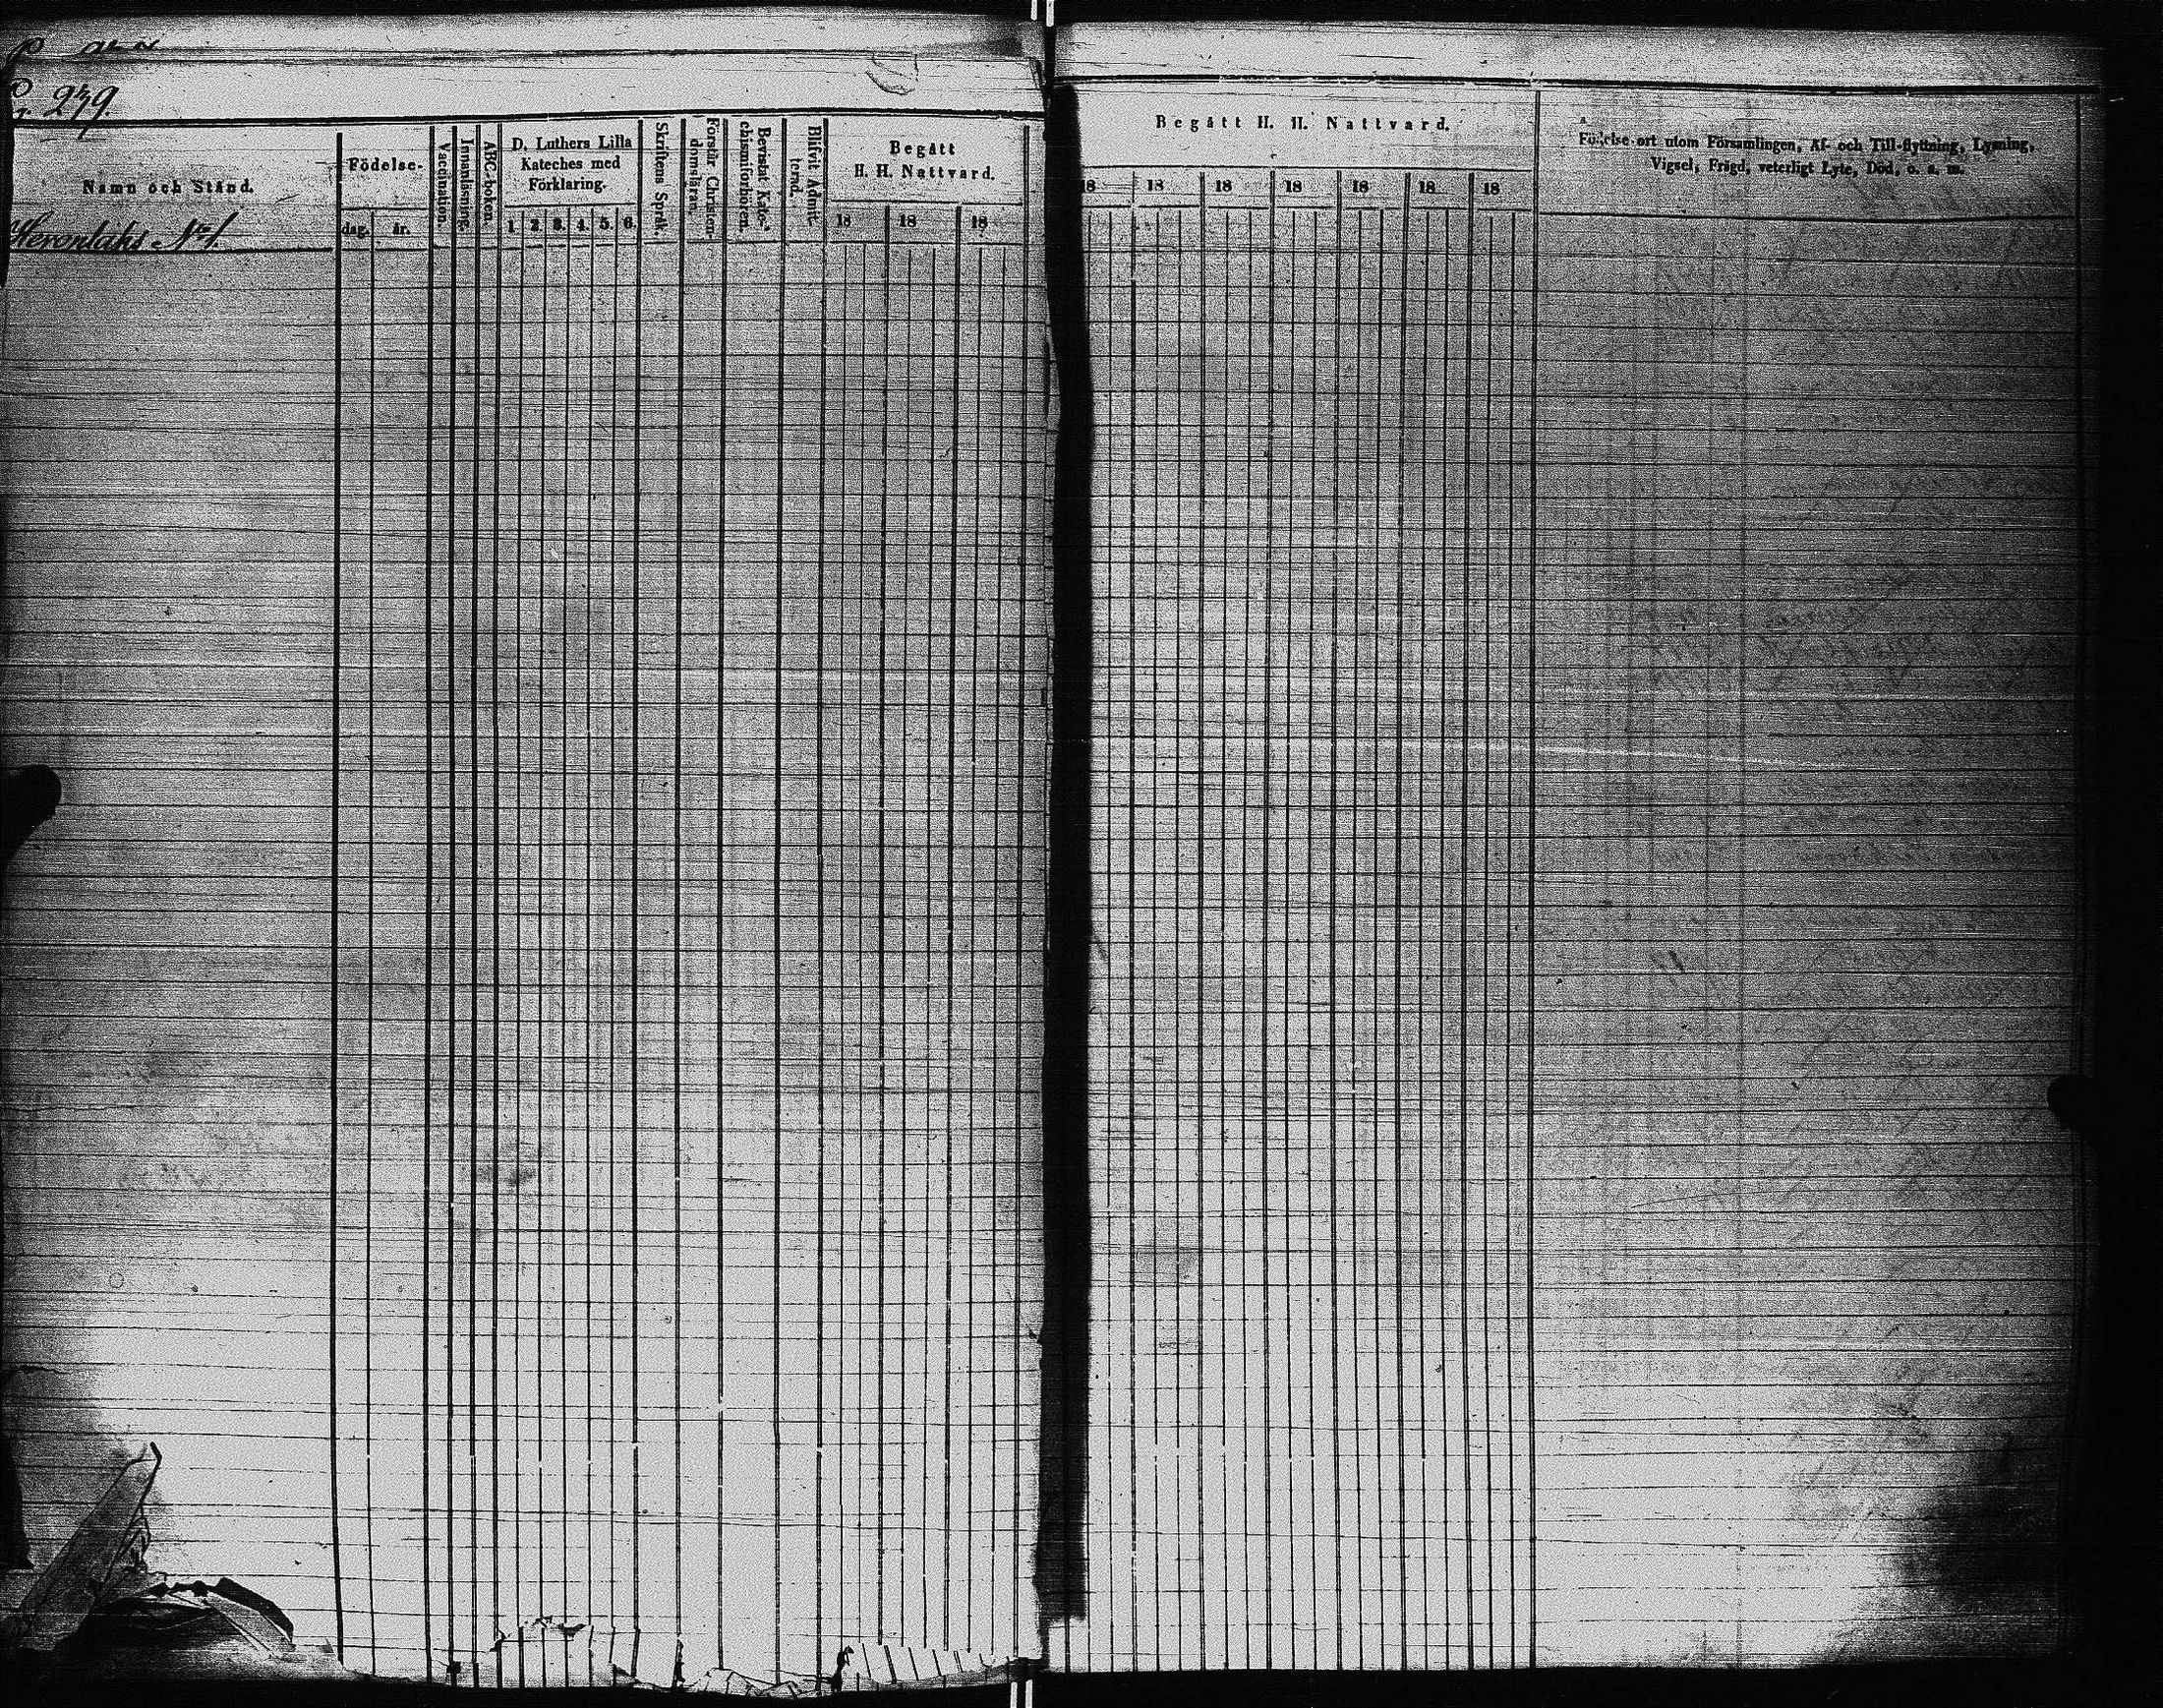 279.
Namn och Stånd.
Födelse-
dag. år.
Vaccination.
Innanläsning.
ABC-boken.
D. Luthers Lilla
Kateches med
Förklaring.
1. 2. 3. 4. 5. 6.
Skriftens Språk.
Förstår Christen-
domsläran.
Bevistat Kate-
chismiförhören.
Blifvit Admit-
terad.
Begått
H. H. Nattvard.
18 18 18
Begått H. H. Nattvard.
18 18 18 18 18 18 18
Födelse-ort utom Församlingen, Af- och Till-flyttning, Lysning,
Vigsel, Frägd, veterligt Lyte, Död, o. s. m.